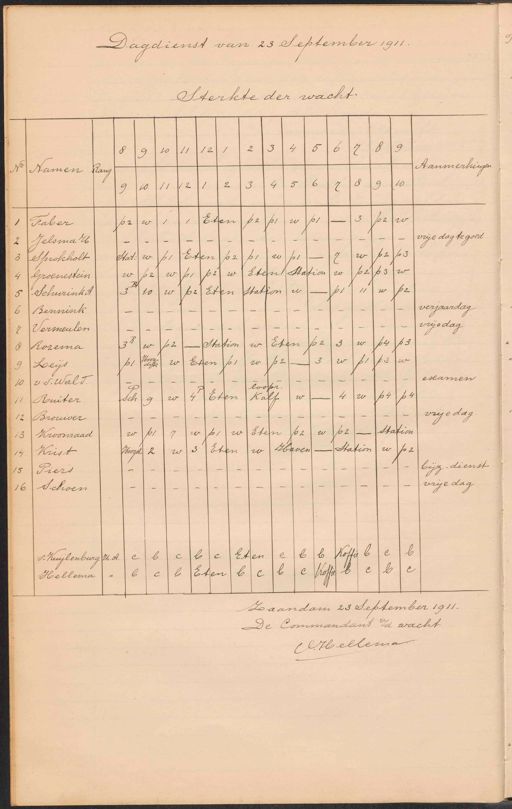 Dagdienst van 23 September 1911.
Sterkte der wacht.
No Namen Rang 8 9 10 11 12 1 2 3 4 5 6 7 8 9 Aanmerkingen
9 10 11 12 1 2 3 4 5 6 7 8 9 10
1 Faber p2 w 1 1 Eten p2 p1 w p1 — 3 p2 w
2 Jelsma – – – – – – – – – – – – – – vrije dag tegoed
3 Spekholt Stat. w p1 Eten p2 p1 w p1 — 7 w p2 p3
4 Groenestein w p2 w p1 p2 w Eten Station w p2 p3 w
5 Schurink 3 10 w p2 Eten Station w — p1 11 w p2
6 Bennink – – – – – – – – – – – – – – verjaardag
7 Vermeulen – – – – – – – – – – – – – – vrije dag
8 Rozema 3 w p2 — Station w Eten p2 3 w p4 p3
9 Leijs p1 w Eten p1 w p2 — 3 w p1 p3 w
10 v.d. Wal – – – – – – – – – – – – – – examen
11 Ruiter Sch 9 w 4 Eten Kalf w — 4 w p4 p4
12 Brouwer – – – – – – – – – – – – – – vrije dag
13 Kroonraad w p1 7 w p1 w Eten p2 w p2 — Station
14 Krist 2 w 3 Eten w Haven — Station w p2
15 Prers – – – – – – – – – – – – – – bijz. dienst
16 Schoen – – – – – – – – – – – – – – vrije dag
v. Kuijlenburg c b c b c Eten c b b Koffo b c b
Hellema " b c b Eten b c b c Koffo b c b c
Zaandam 23 September 1911.
De Commandant v/d wacht
Hellema